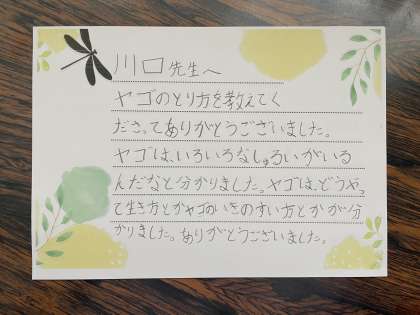 川口先生へ
ヤゴのとり方を教えてく
ださってありがとうございました。
ヤゴは、いろいろなしゅるいがいる
んだなと分かりました。ヤゴは、どうやっ
て生き方とかヤゴのいきのすい方とかが分
かりました。ありがとうございました。